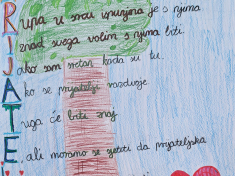 Rupa u srcu ispunjena je s njima
Iznad svega volim s njima biti.
Jako sam sretan kada su tu.
Ako se prijatelji razdvoje
Tuga će biti znaj
E, ali moramo se sjetiti da prijateljska